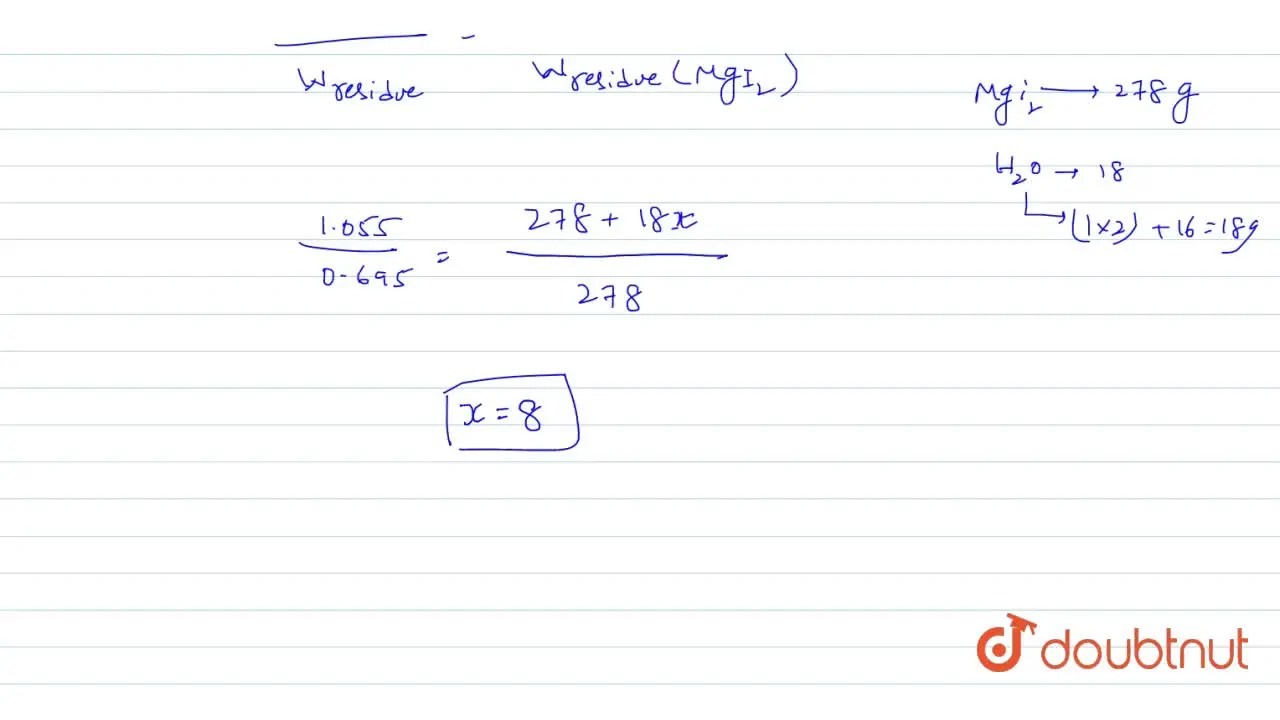 W residue
W residue (MgI₂)
Mgi₂ → 278 g
H₂O → 18
(1×2) + 16 = 18g
1.055 / 0.695 = 278 + 18x / 278
x = 8
doubtnut